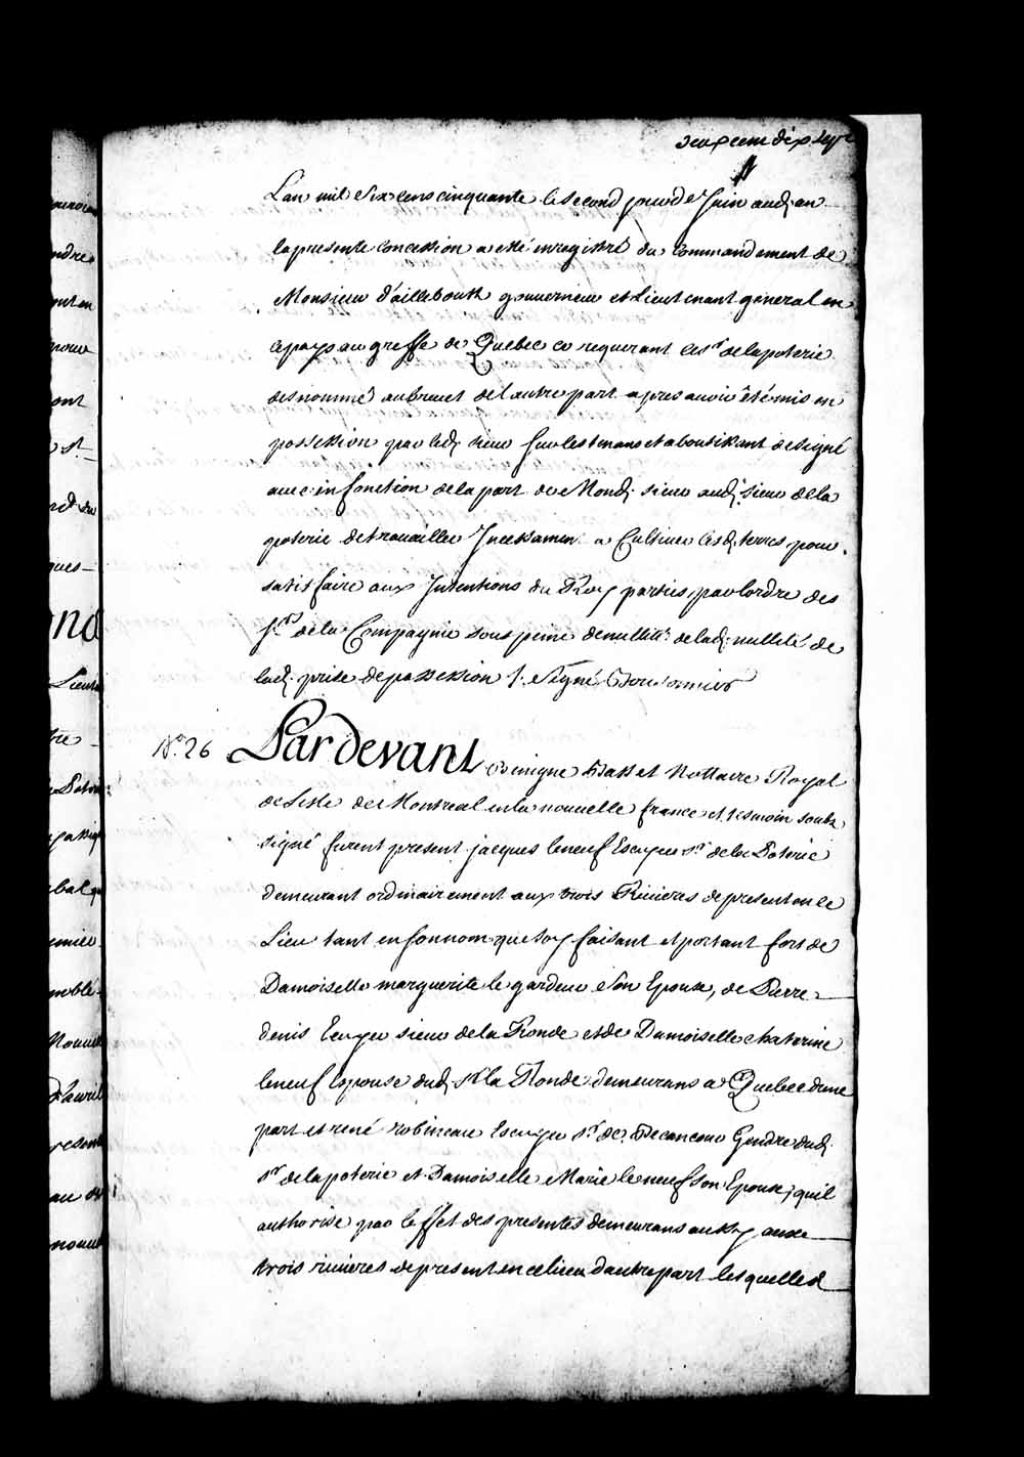 deux cent dix sept
L'an mil six cens cinquante le second jour de Juin aud. an
la presente concession a esté enregistré du Commandement de
Monsieur d'aillebouth gouverneur et Lieutenant general en
ce pays au greffe de Quebec ce requerant le sr. de la poterie
desnommé au brevet de l'autre part apres avoir été mis en
possession par led. sieur sur les tenans et aboutissant designé
avec injonction de la part de Mond. sieur aud. sieur de la
poterie de travailler Incessamen. a Cultiver lesd. terres pour
satisfaire aux Intentions du Roy parties, par lordre des
srs. de la Compagnie sous peine de nullité de lad. nulleté de
lad. prise de possession /. Signé
No. 26 Pardevant Benigne Basset Nottaire Royal
de Lisle de Montreal en la nouvelle france et tesmoin soubz
signé furent present jacques leneuf Escuyer sr. de la Poterie
demeurant ordinairement aux trois Rivieres de present en ce
Lieu tant en son nom que soy faisant et portant fort de
Damoiselle marguerite le gardeur son Epouse, de Pierre
denis Ecuyer sieur de la Ronde et de Damoiselle chaterine
leneuf Espouse dud. sr la Ronde demeurans a Quebec dune
part et rené robineau Escuyer sr. de Becancour Gendre dud.
sr. de la poterie et Damoiselle Marie leneuf son Epouse, quil
authorise par leffet des presentes demeurans aussy aux
trois rivieres de present en ce lieu dautre part lesquelles